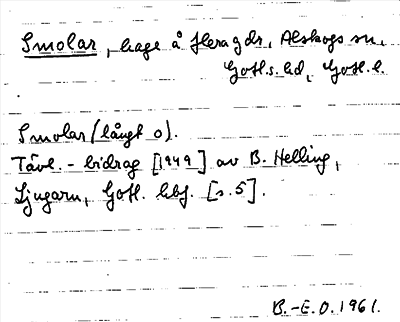 Smolar, hage å Hera gdr, Alskogs sn,
Gotl. s. hd, Gotl. l.
Smolar (långt o).
Tävl.-bidrag [1949] av B. Helling,
Ljugarn, Gotl. hbf. [s. 5].
B.-E.O. 1961.